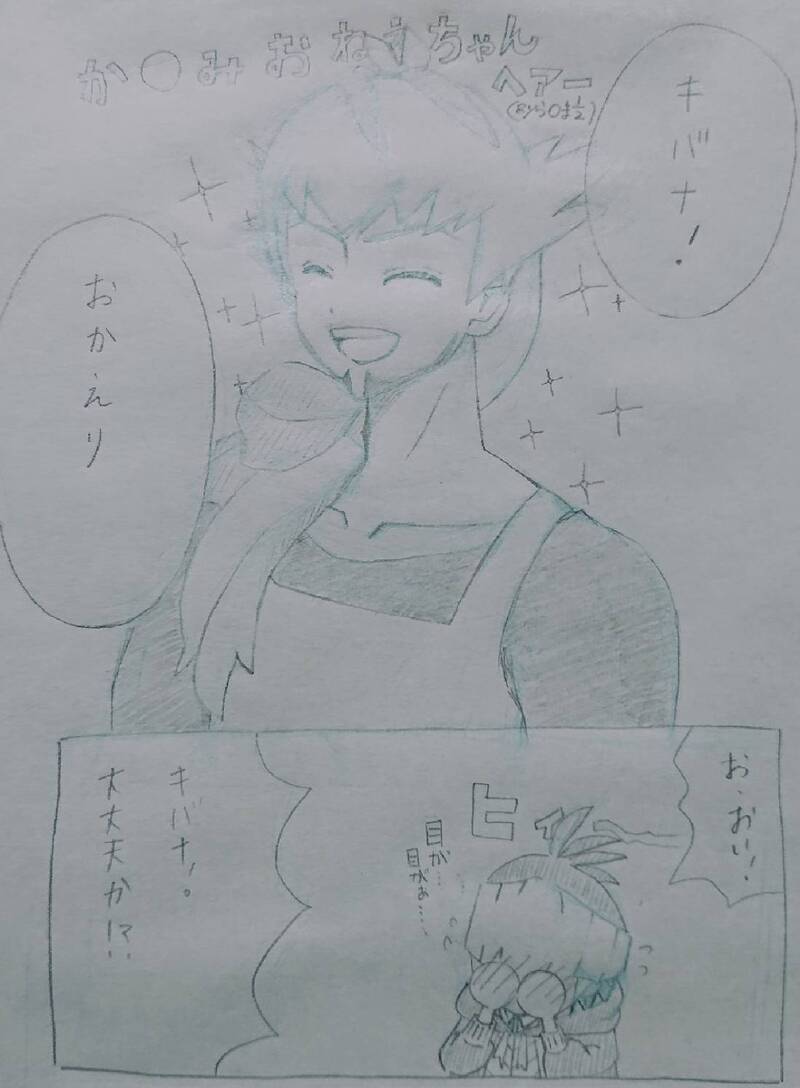 か〇みおねぇちゃん
ヘアー
(Ryら〇ま½)
キバナ!
おかえり
お、おい!
ヒィー
目が…
目がぁ……
キバナ。
大丈夫か!?